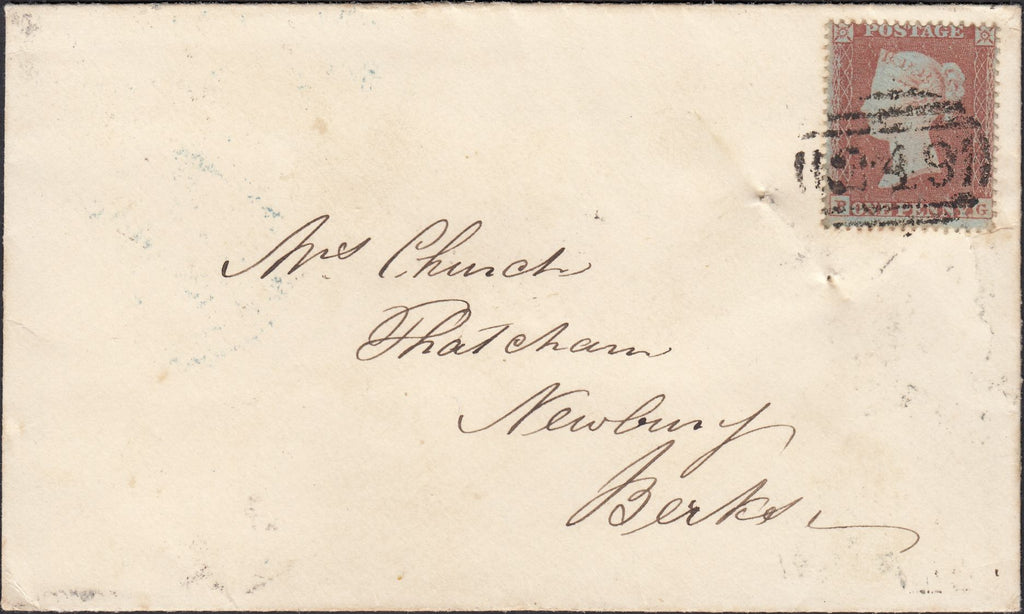 POSTAGE
249
ONE PENNY G
Mrs Church
Thatcham
Newbury
Berks